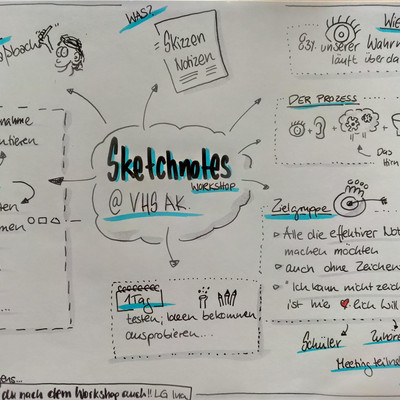 WAS?
Skizzen
Notizen
WIE
93% unserer Wahrn
läuft über da
DER PROZESS
Das
Hirn
Sketchnotes
WORKSHOP
@ VHS AK.
Zielgruppe
Alle die effektiver Not
machen möchten
auch ohne Zeichen
"Ich kann nicht zeich
ist hie
Schüler
Zuhöre
Meetingteiln
1 Tag
testen, Ideen bekommen
ausprobieren...
nahme
ntieren
ten
men
du nach dem Workshop auch!! LG Ina